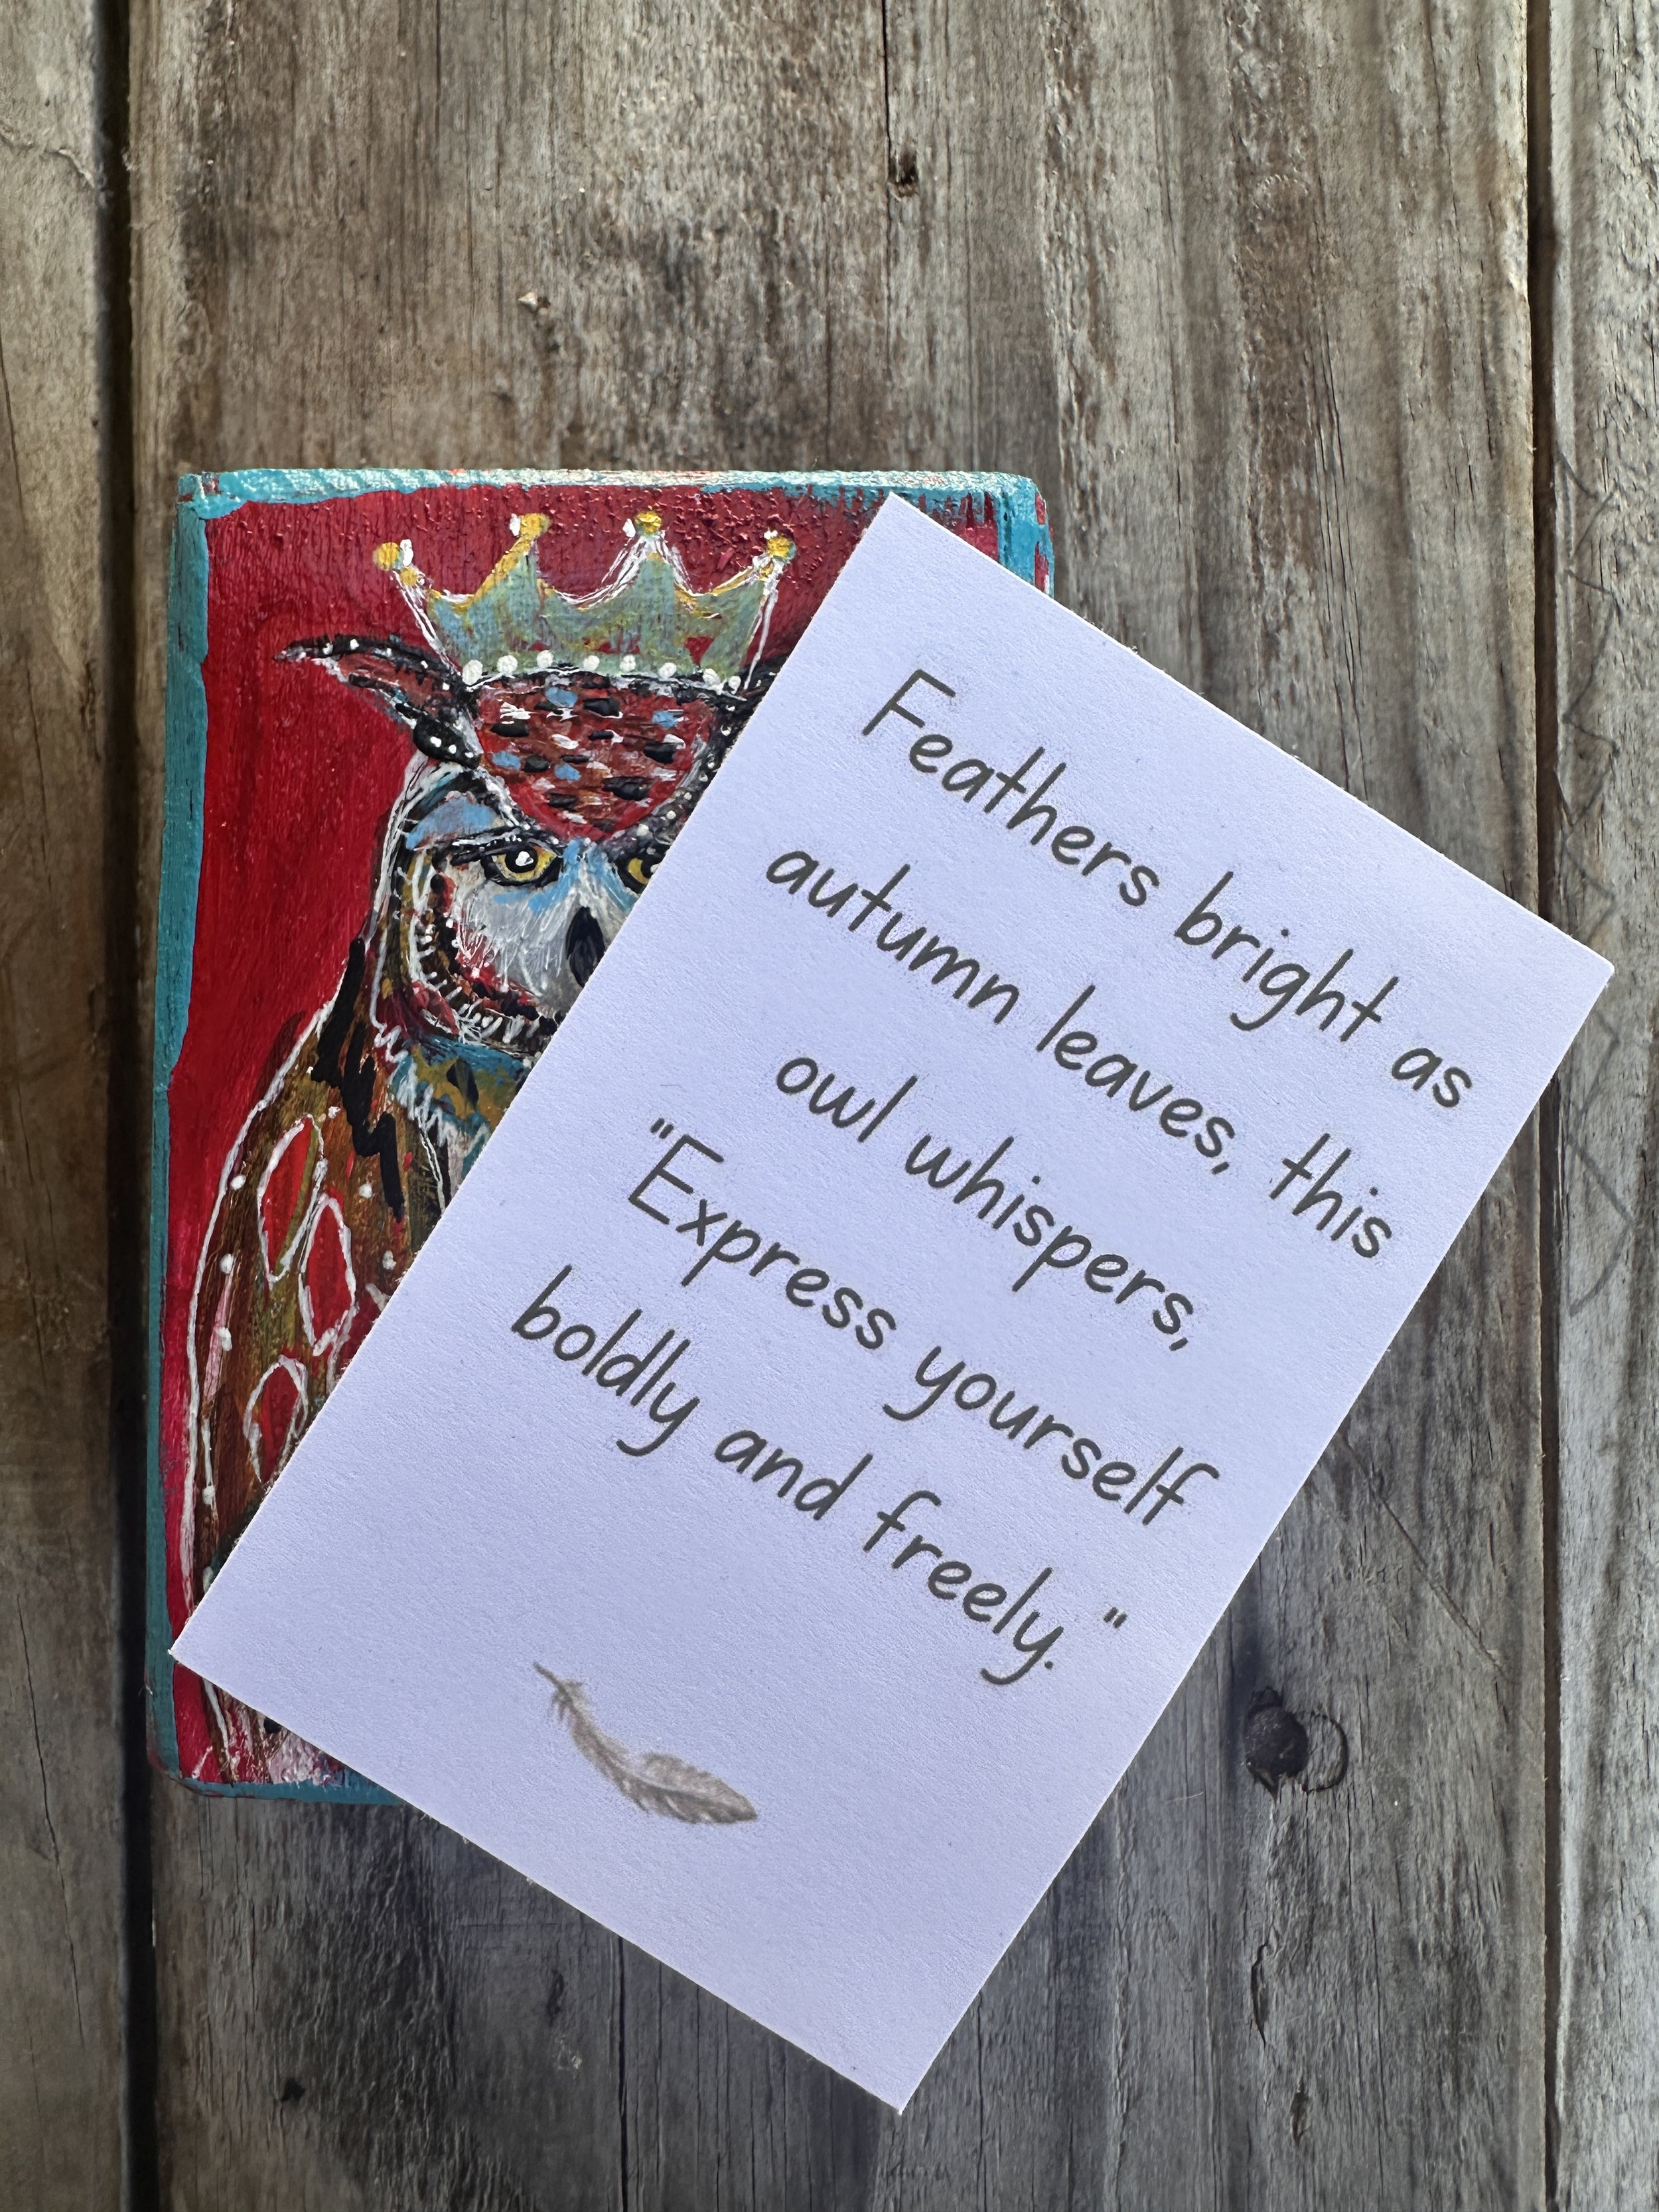 Feathers bright as
autumn leaves, this
owl whispers,
"Express yourself
boldly and freely."